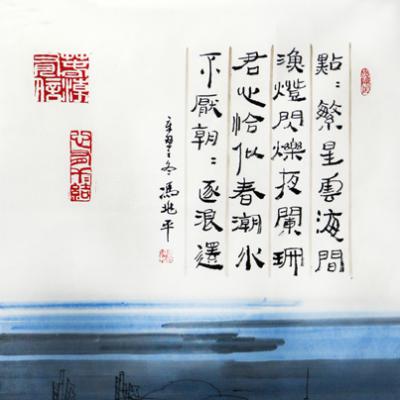 點：繁星雲海間
漁燈閃爍夜闌珊
君心恰似春潮水
不厭朝：逐浪還
冬馮兆平